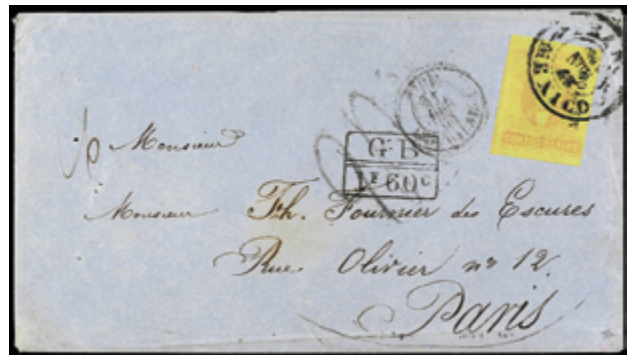 G B
1F 60c
Monsieur
Monsieur Th. Fournier des Escures
Rue Olivier no 12.
Paris